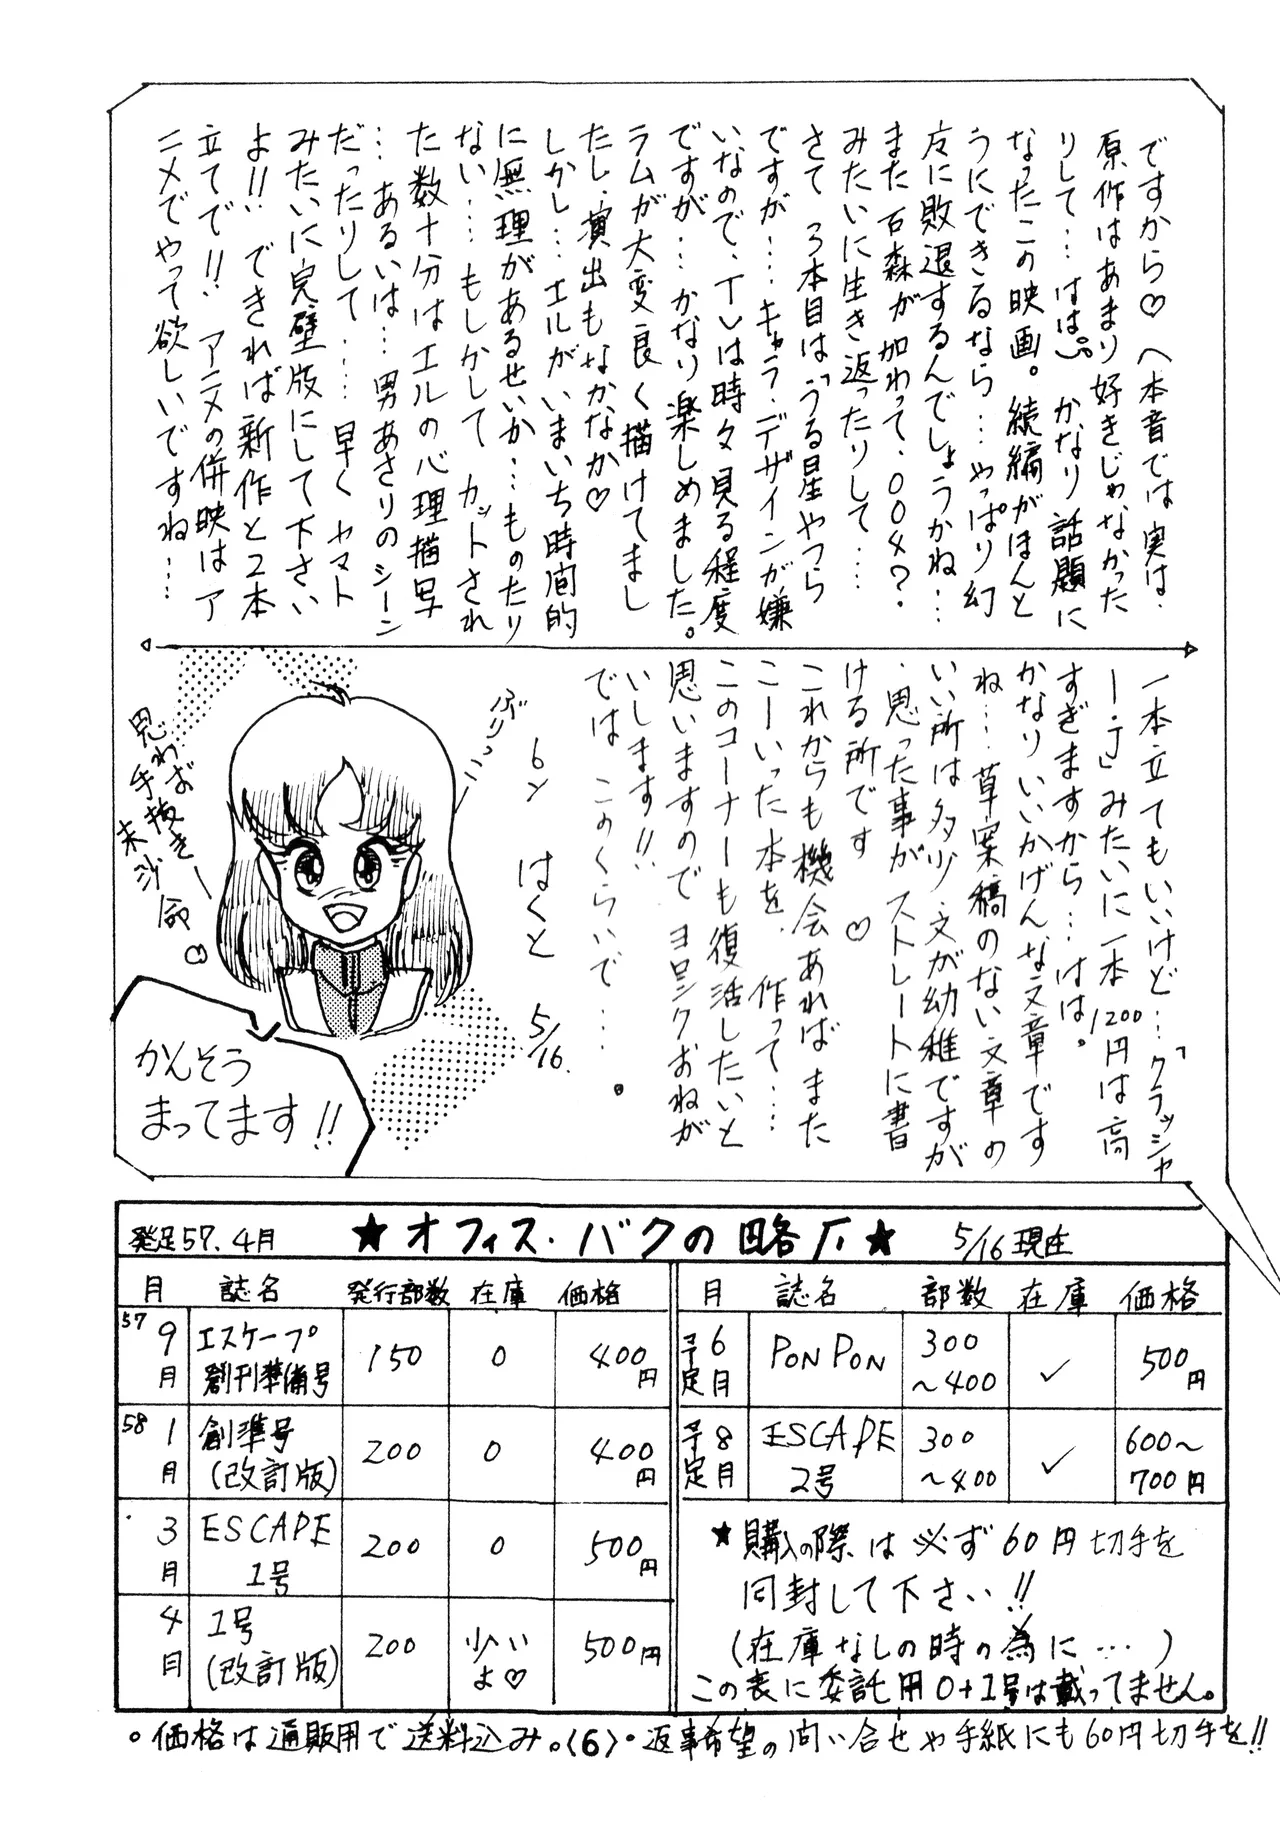 ですから♡ へ本音では実は、
原作はあまり好きじゃなかった
りして…はは かなり話題に
なったこの映画。続編がほんと
うにできるなら…やっぱり幻
友に敗退するんでしょうかね…
また石森が加わって、004?
みたいに生き返ったりして……
さて 3本目は「うる星やつら
ですが……キャラ・デザインが嫌
いなので、TVは時々見る程度
ですが…かなり楽しめました。
ラムが大変良く描けてまし
たし、演出もなかなか♡
しかし…エルがいまいち時間的
に無理があるせいか…ものたり
ない……もしかして カットされ
た数十分はエルの心理描写
…あるいは…男あさりのシーン
だったりして……早くヤマト
みたいに完璧版にして下さい
よ!! できれば新作と2本
立てで!! アニメの併映はア
ニメでやって欲しいですね……
一本立てもいいけど…「クラッシャ
ー・J」みたいに一本1200円は高
すぎますから…はは。
かなりいいかげんな文章です
ね…草案稿のない文章の
いい所は多少、文が幼稚ですが
、思った事がストレートに書
ける所です♡
これからも機会あればまた
こーいった本を、作って……
このコーナーも復活したいと
思いますので ヨロシクおねが
いします!!
では このくらいで……。
by はくと 5/16.
ぶりっこ
思わず
手抜きー
未沙命♡
かんそう
まってます!!
発足57.4月 ★オフィス・バクの略歴★ 5/16現在
月 誌名 発行部数 在庫 価格
57 9月 エスケープ創刊準備号 150 0 400円
58 1月 創準号(改訂版) 200 0 400円
3月 ESCAPE 1号 200 0 500円
4月 1号(改訂版) 200 少いよ♡ 500円
月 誌名 部数 在庫 価格
予定6月 PONPON 300～400 ✓ 500円
予定8月 ESCAPE 2号 300～400 ✓ 600～700円
★購入の際は必ず60円切手を
同封して下さい!!
(在庫なしの時の為に…)
この表に委託用0+1号は載ってません。
。価格は通販用で送料込み。〈6〉・返事希望の問い合せや手紙にも60円切手を!!